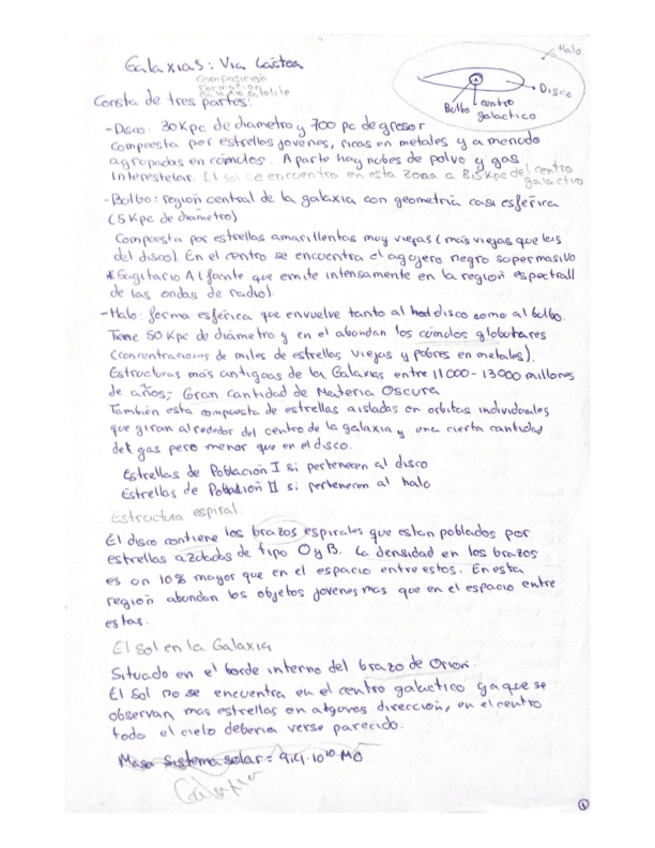 Galaxias: Vía Láctea
Composición
Formación
Consta de tres partes:
Halo
Disco
Bulbo
centro
galactico
-Disco: 30Kpc de diametro y 700 pc de grosor
compuesta por estrellas jovenes, ricas en metales y a menudo
agrupadas en cúmulos. A parte hay nubes de polvo y gas
interestelar. El sol se encuentra en esta zona a 8,5Kpc del centro
galactico
-Bolbo: región central de la galaxia con geometria casi esférica
(5Kpc de diametro)
Compuesta por estrellas amarillentas muy viejas (más viejas que las
del disco). En el centro se encuentra el agujero negro supermasivo
*Sagitario A (fuente que emite intensamente en la region espectrall
de las ondas de radio).
-Halo: forma esférica que envuelve tanto al disco como al bulbo.
Tiene 50 Kpc de diámetro y en el abundan los cúmulos globulares
(concentraciones de miles de estrellas viejas y pobres en metales).
Estructuras más antiguas de la Galaxias entre 11000-13000 millones
de años; Gran cantidad de Materia Oscura
También esta compuesta de estrellas aisladas en orbitas individuales
que giran alrededor del centro de la galaxia y una cierta cantidad
de gas pero menor que en el disco.
Estrellas de Población I si pertenecen al disco
Estrellas de Población II si pertenecen al halo
Estructura espiral
El disco contiene los brazos espirales que estan poblados por
estrellas azuladas de tipo O y B. La densidad en los brazos
es un 10% mayor que en el espacio entre estos. En esta
región abundan los objetos jovenes mas que en el espacio entre
estas.
El Sol en la Galaxia
Situado en el borde interno del brazo de Orion.
El Sol no se encuentra en el centro galactico ya que se
observan mas estrellas en algunas direccion, en el centro
todo el cielo deberia verse parecido.
Masa Sistema solar = 9,4·10¹⁰ MO
Galaxia
1